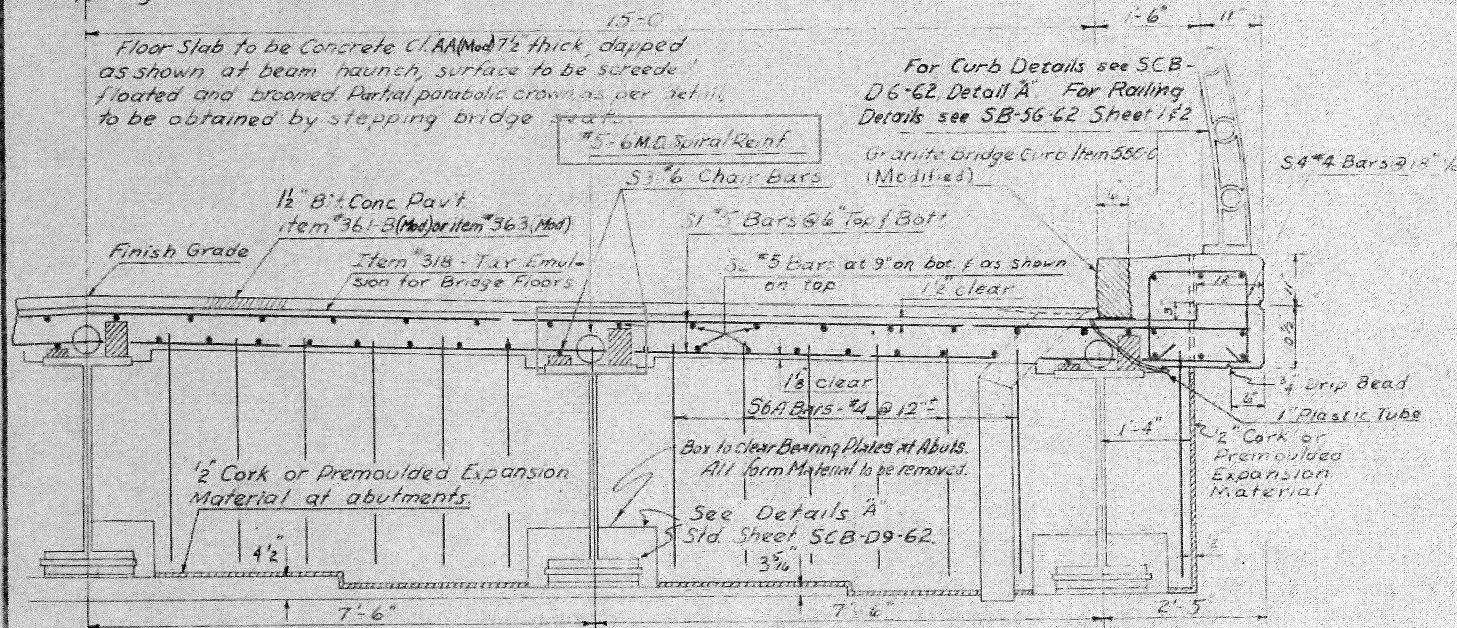 15-0
1'-6"
11"
Floor Slab to be Concrete Cl. AA(Mod) 7½" thick, dapped
as shown at beam haunch, surface to be screeded
floated and broomed. Partial parabolic crown as per detail
to be obtained by stepping bridge seats.
For Curb Details see SCB-
D6-62, Detail "A". For Railing
Details see SB-56-62 Sheet 1 & 2
#5-6 M.D. Spiral Reinf.
Granite Bridge Curb Item
(Modified)
S4 #4 Bars @ 18"
S3 #6 Chair Bars
1½" Bit. Conc. Pav't
item #361-B(Mod) or item #363(Mod)
S1 #5 Bars @ 6" Top & Bott
Finish Grade
Item #318 - Tar Emul-
sion for Bridge Floors
S2 #5 Bars at 9" on bot. & as shown
on top
1½" clear
12"
11"
3"
10½"
1⅛" clear
S6A Bars - #4 @ 12"±
¾" Drip Bead
6"
1" Plastic Tube
1'-4"
½" Cork or
Premoulded
Expansion
Material
Box to clear Bearing Plates at Abuts.
All form Material to be removed.
½" Cork or Premoulded Expansion
Material at abutments.
See Details "A"
Std. Sheet SCB-D9-62.
4½"
3 5/16"
7'-6"
7'-6"
2'-5"